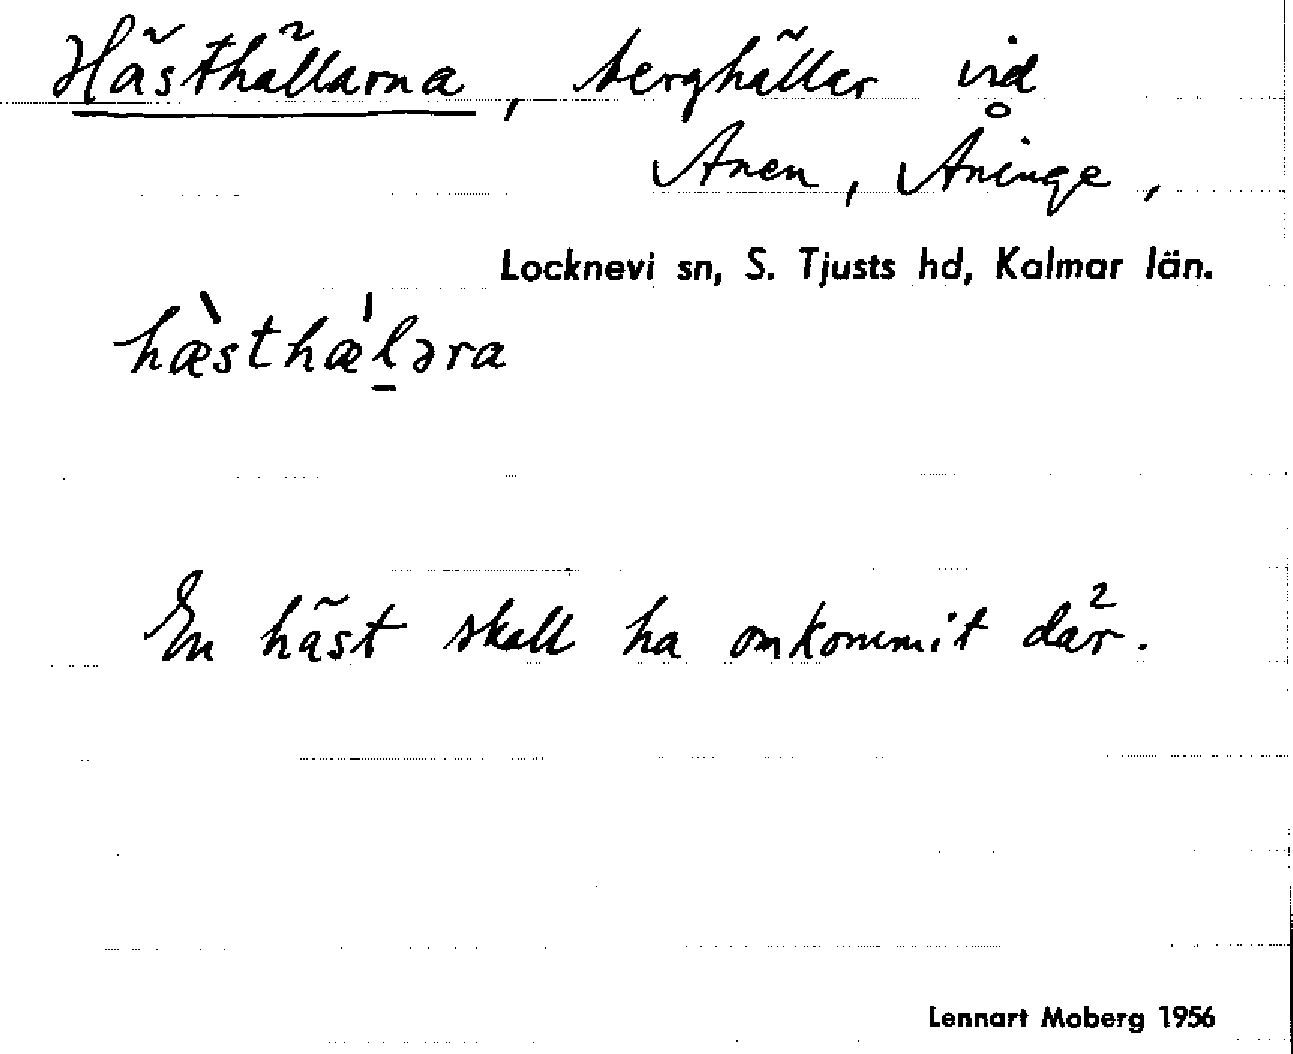 Hästhällarna, berghällar vid
Anen, Åninge,
Locknevi sn, S. Tjusts hd, Kalmar län.
hæ̀sthæ̍l̠əra
En häst skall ha omkommit där.
Lennart Moberg 1956